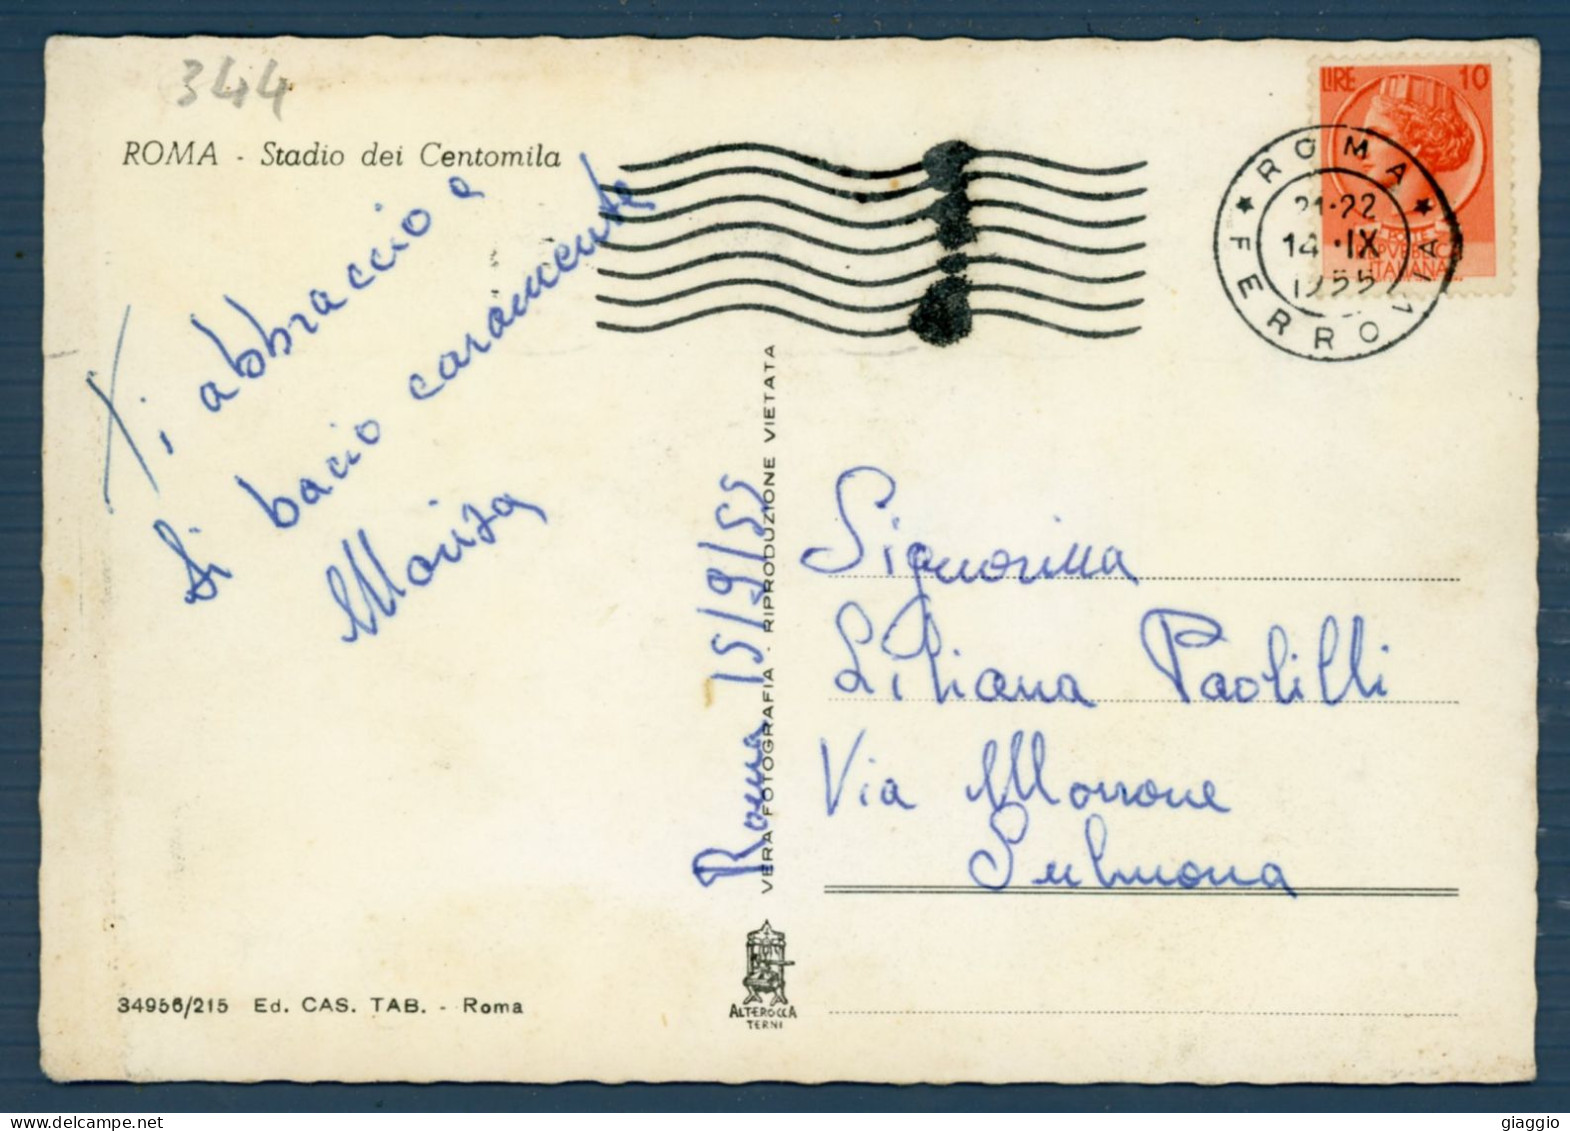 344
ROMA - Stadio dei Centomila
Ti abbraccio e
ti bacio caramente
Marisa
Roma 15/9/55
VERA FOTOGRAFIA - RIPRODUZIONE VIETATA
LIRE 10
REPUBBLICA
ITALIANA
ROMA
FERROVIA
21·22
14·IX
1955
Signorina
Liliana Paolilli
Via Morrone
Sulmona
34956/215 Ed. CAS. TAB. - Roma
ALTEROCCA
TERNI
giaggio